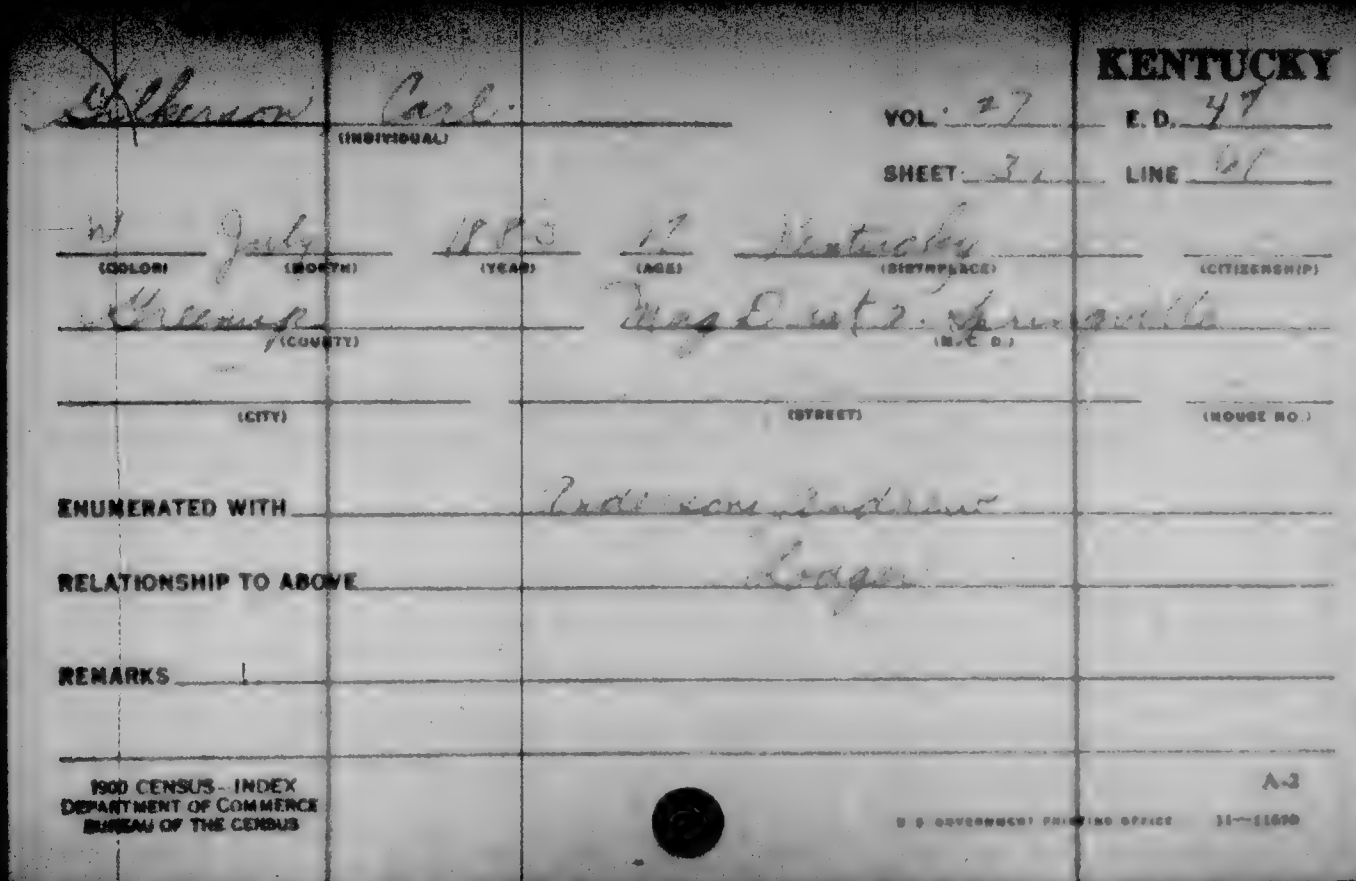 KENTUCKY
Gilkerson Carl
(INDIVIDUAL)
VOL. 27 E. D. 47
SHEET 3 LINE
W July 1883 Kentucky
(COLOR) (MONTH) (YEAR) (AGE) (BIRTHPLACE) (CITIZENSHIP)
Greenup Mag Dist 2 Springville
(COUNTY) (M. C. D.)
(CITY) (STREET) (HOUSE NO.)
ENUMERATED WITH Anderson Andrew
RELATIONSHIP TO ABOVE Lodger
REMARKS
1900 CENSUS - INDEX
DEPARTMENT OF COMMERCE
BUREAU OF THE CENSUS
A-2
U S GOVERNMENT PRINTING OFFICE